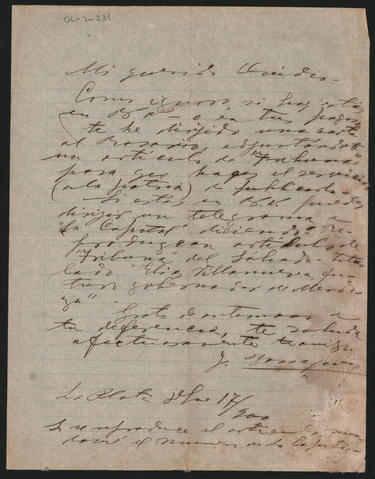 OL-2-231
Mi querido
Como ignoro si hoy está
en Bs As o en
te he dirigido una carta
al Rosario, adjuntando
un artículo de "Tribuna"
para que hagas el servicio
(a la patria) de publicarlo.
Si estás en Bs As puedes
dirigir un telegrama a
"La Capital" diciendo: "Re-
produzcan artículo de
"Tribuna" del Sábado titu-
lado "Elias Villanueva, fu-
turo gobernador de Mendo-
za"
de antemano a
tu deferencia, te saluda
afectuosamente tu amigo
J.
La Plata 17/
Si se reproduce el artículo
el número de La Capital